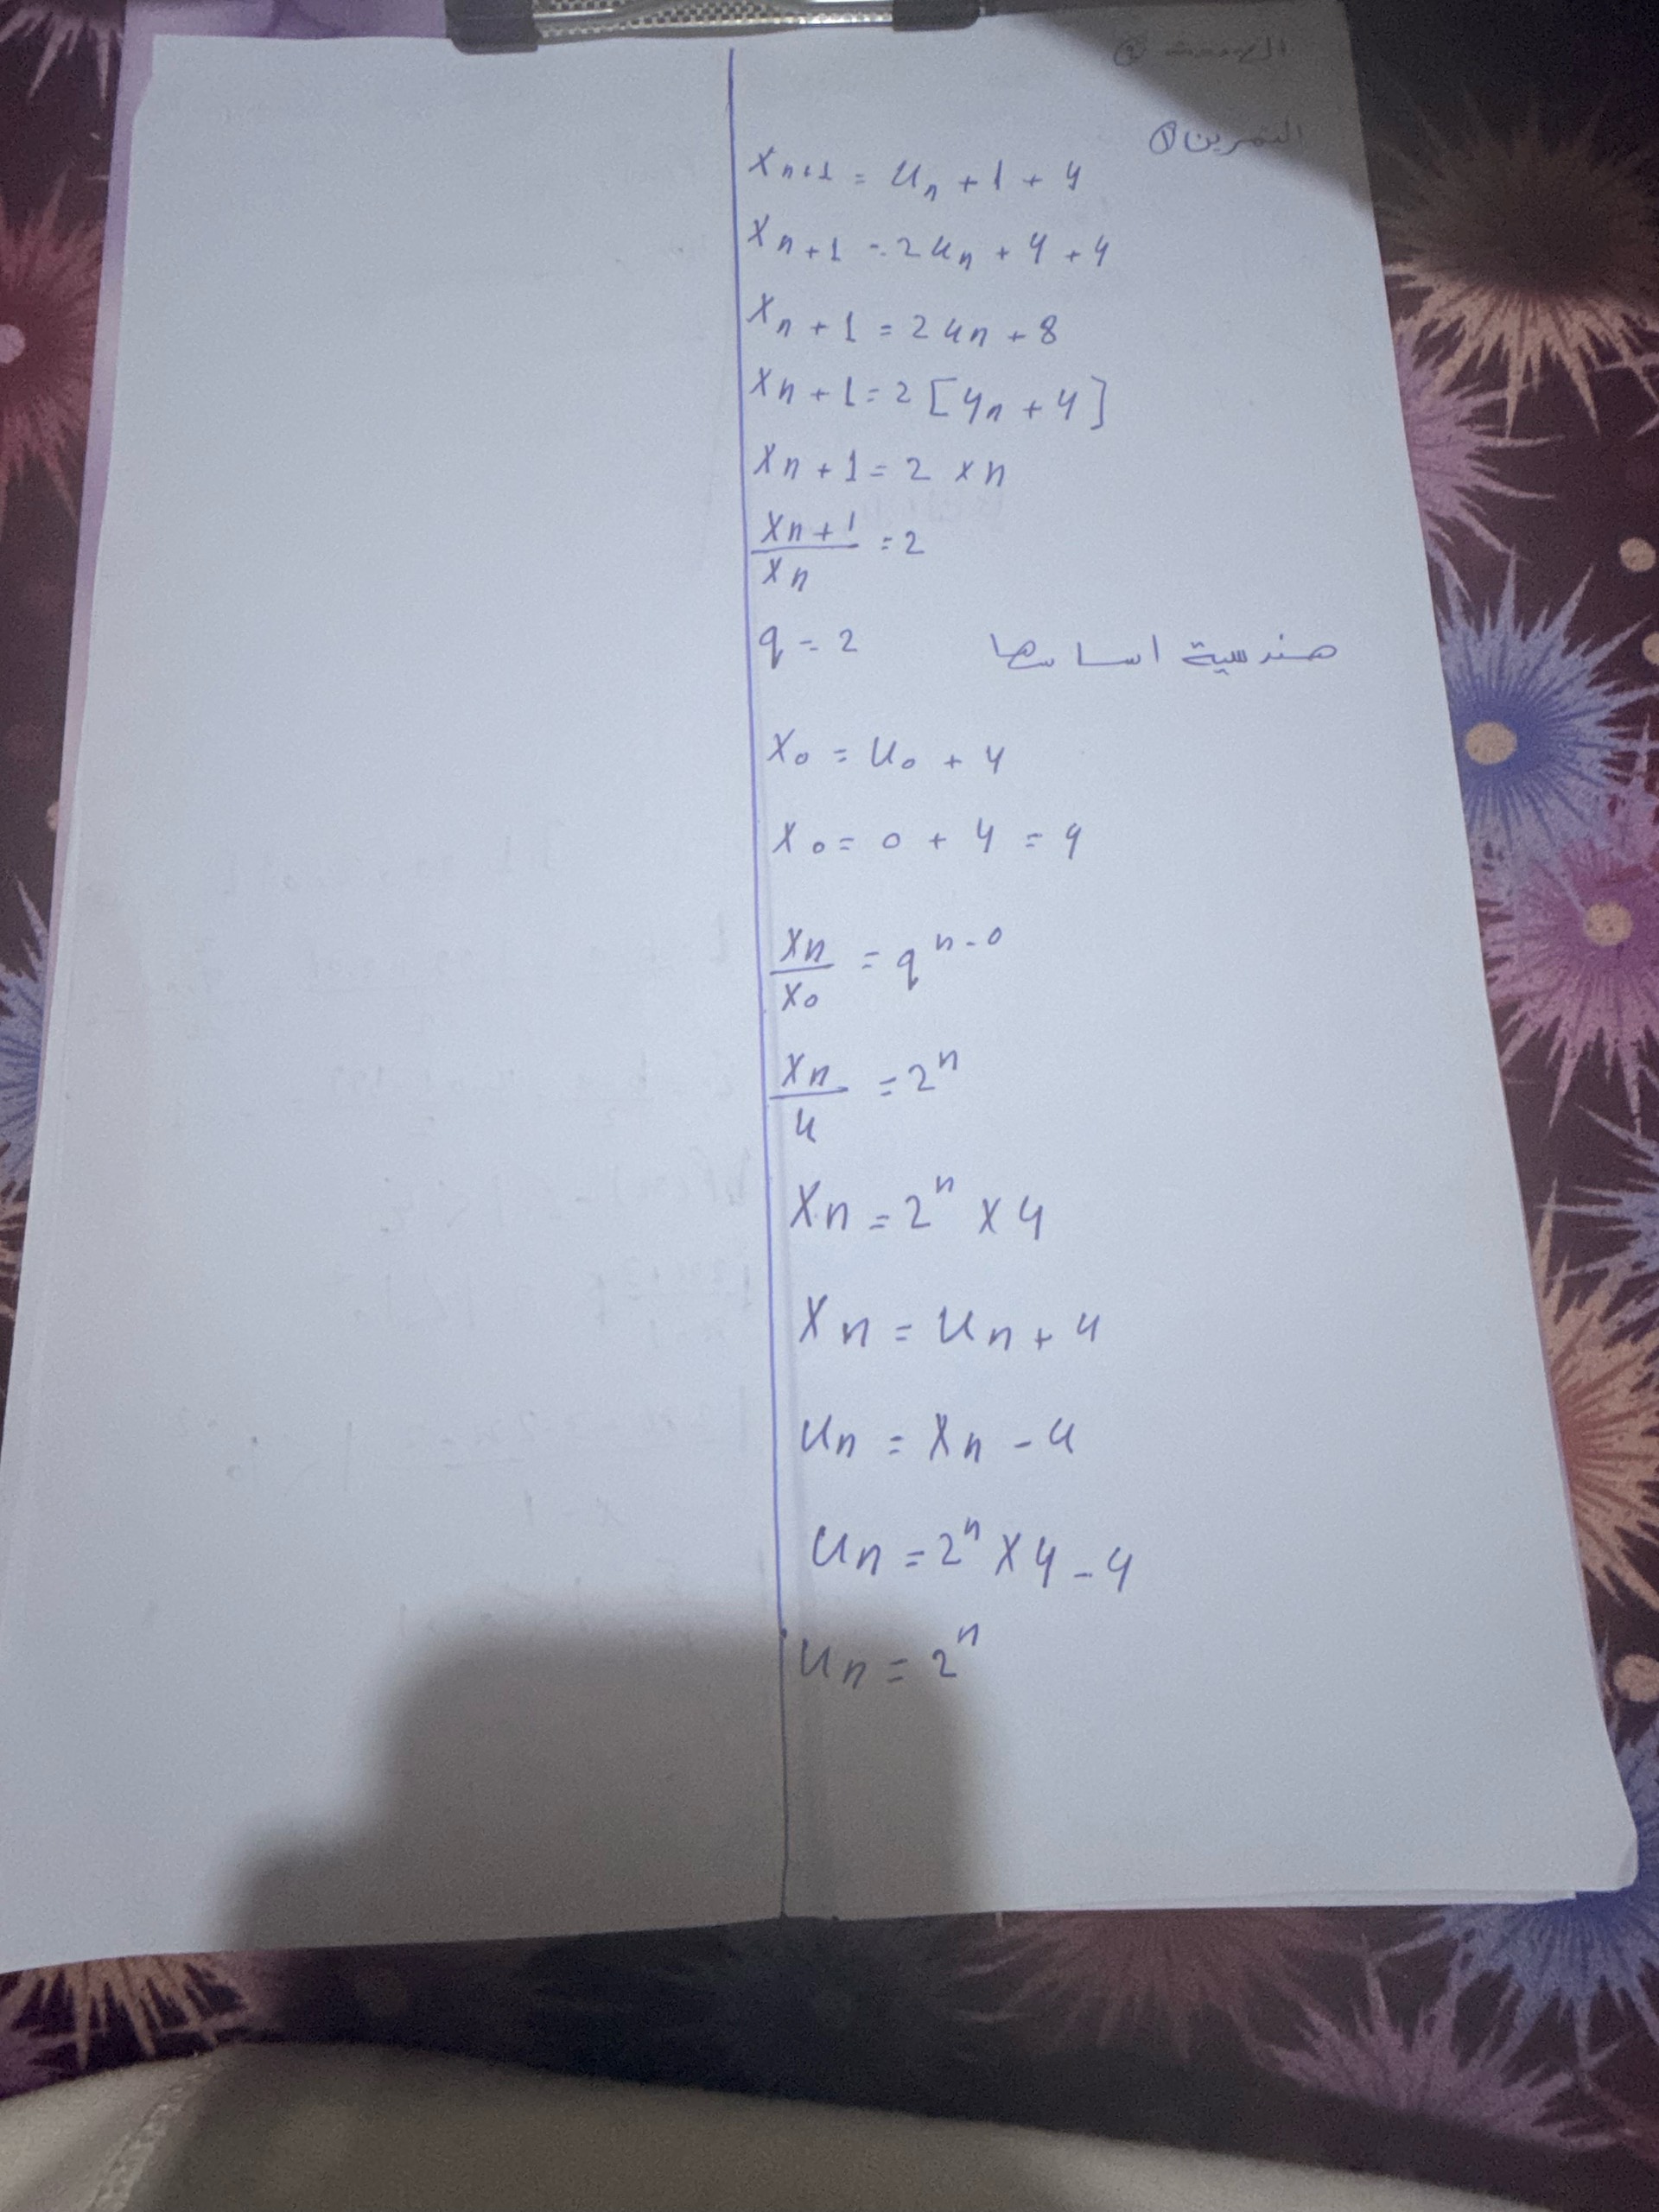 التمرين ①
Xn+1 = Un + 1 + 4
Xn+1 = 2Un + 4 + 4
Xn + 1 = 2Un + 8
Xn + 1 = 2 [Un + 4]
Xn + 1 = 2 Xn
Xn + 1 / Xn = 2
q = 2 هندسية اساسها
X0 = U0 + 4
X0 = 0 + 4 = 4
Xn / X0 = q^n-0
Xn / 4 = 2^n
Xn = 2^n X 4
Xn = Un + 4
Un = Xn - 4
Un = 2^n X 4 - 4
Un = 2^n